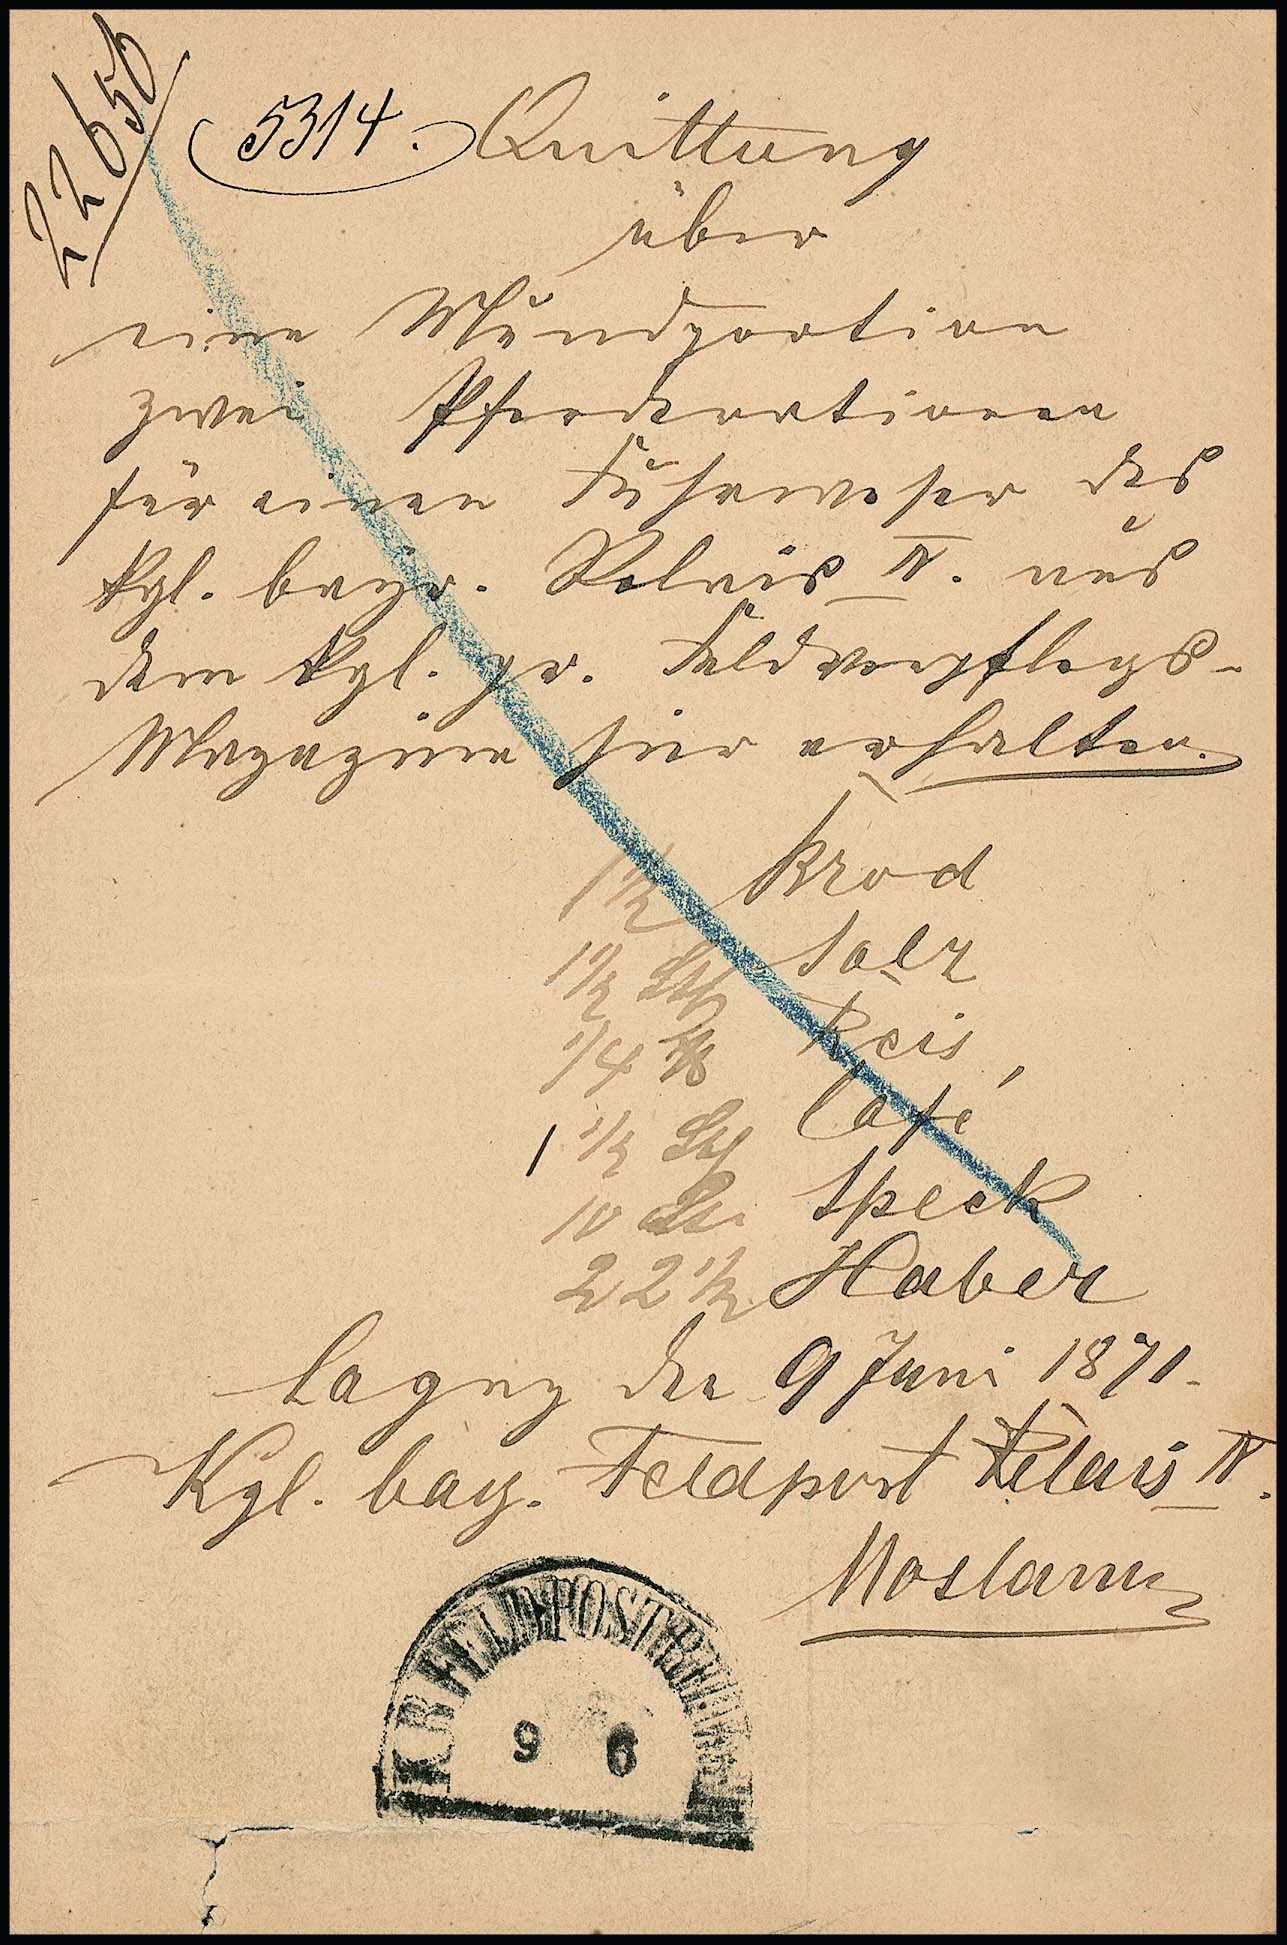 22650
5314. Quittung
über
eine Mundportion
zwei Pferderationen
für einen Fuhrweser des
kgl. bayr. Relais IV. aus
dem kgl. pr. Feldverpflegs-
Magazine hier erhalten.
1 1/2 Brod
1 1/2 Lth Salz
1/4 ℔ Reis
1 1/2 Lth Café
10 Lth Speck
22 1/2 Haber
Lagny den 9 Juni 1871.
Kgl. bay. Feldpost Relais IV.
K B FELDPOSTRELAIS
9 6